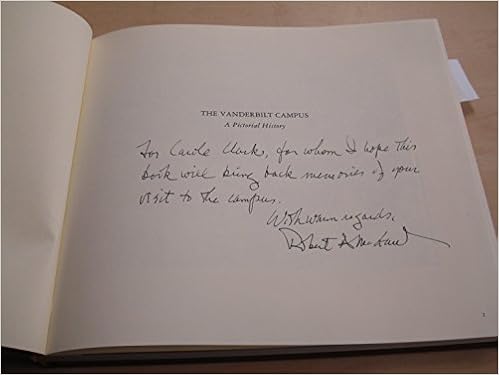 THE VANDERBILT CAMPUS
A Pictorial History
For Carole , for whom I hope this
book will bring back memories of your
visit to the campus.
With warm regards,
Robert A.
1